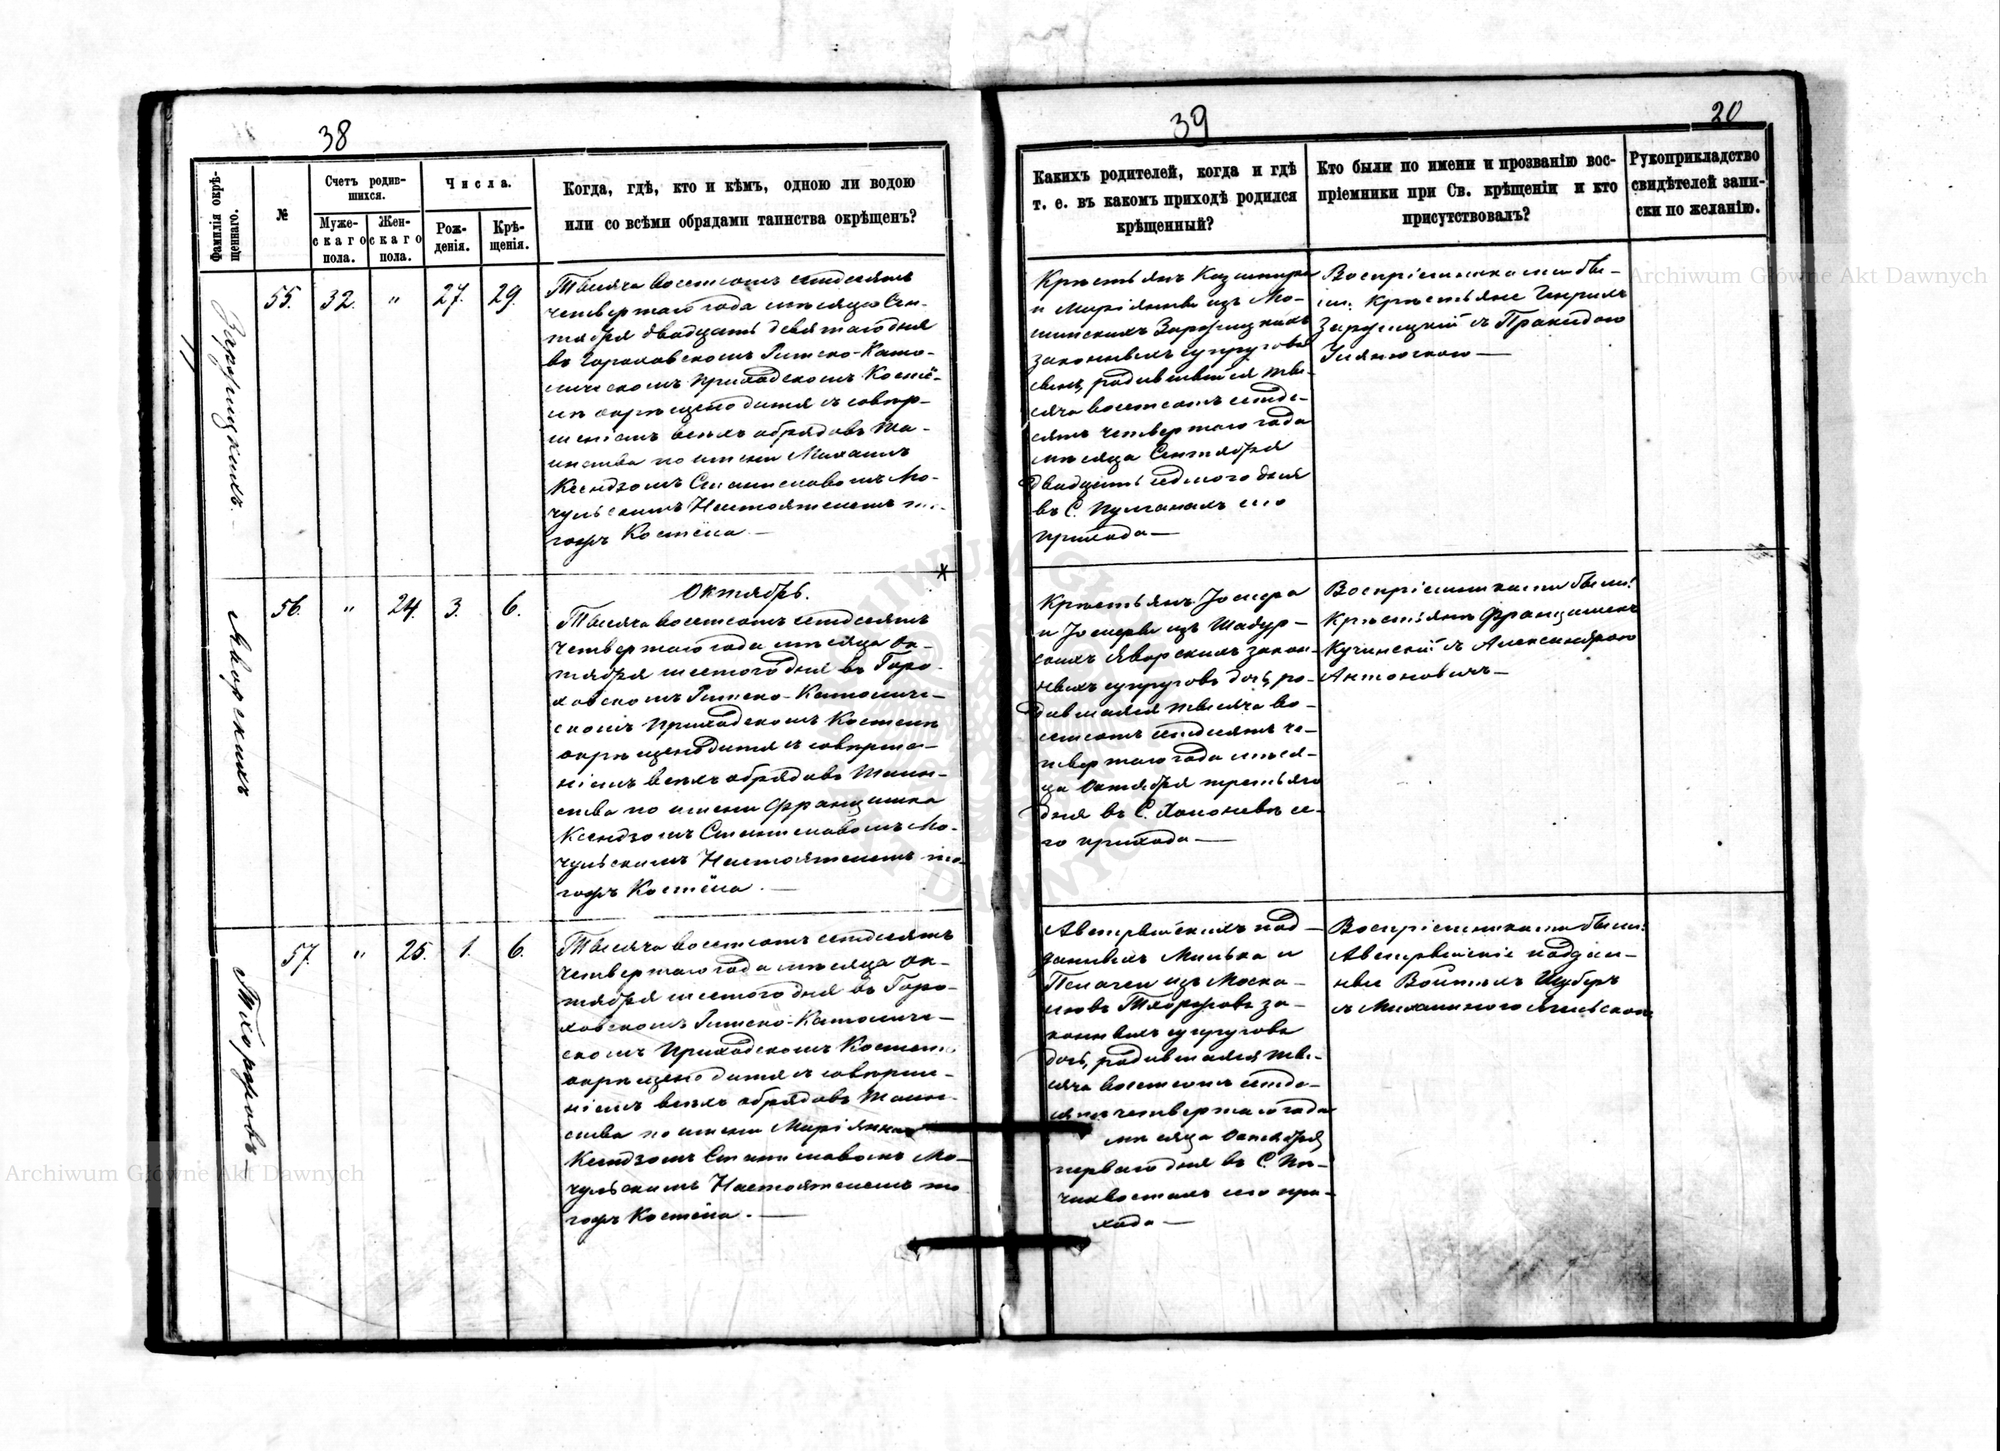 38
Фамилія окрѣ-
щеннаго.
№
Счетъ родив-
шихся.
Муже-
скаго
пола.
Жен-
скаго
пола.
Числа.
Рож-
денія.
Крѣ-
щенія.
Когда, гдѣ, кто и кѣмъ, одною ли водою
или со всѣми обрядами таинства окрѣщенъ?
55.
32.
"
27.
29.
Тысяча восемсотъ семдесятъ
четвертаго года мѣсяца Сен-
тября двадцать девятаго дня
въ Гороховскомъ Римско-Като-
лическомъ приходскомъ Костё-
лѣ окрѣщено дитя съ совер-
шеніемъ всѣхъ обрядовъ Та-
инства по имени Михаилъ
Ксендзомъ Станиславомъ Мо-
чульскимъ Настоятелемъ то-
гожъ Костёла —
56.
"
24.
3.
6.
Яворскихъ
Октябрь.
Тысяча восемсотъ семдесятъ
четвертаго года мѣсяца Ок-
тября шестого дня въ Горо-
ховскомъ Римско-Католиче-
скомъ приходскомъ Костелѣ
окрѣщено дитя съ соверше-
ніемъ всѣхъ обрядовъ Таин-
ства по имени Францишка
Ксендзомъ Станиславомъ Мо-
чульскимъ Настоятелемъ то-
гожъ Костёла. —
57.
"
25.
1.
6.
Тхоржовъ —
Тысяча восемсотъ семдесятъ
четвертаго года мѣсяца Ок-
тября шестого дня въ Горо-
ховскомъ Римско-Католиче-
скомъ приходскомъ Костелѣ
окрѣщено дитя съ соверше-
ніемъ всѣхъ обрядовъ Таин-
ства по имени Маріянна
Ксендзомъ Станиславомъ Мо-
чульскимъ Настоятелемъ то-
гожъ Костёла. —
39
20
Какихъ родителей, когда и гдѣ
т. е. въ какомъ приходѣ родился
крѣщенный?
Кто были по имени и прозванію вос-
пріемники при Св. крѣщеніи и кто
присутствовалъ?
Рукоприкладство
свидѣтелей запи-
ски по желанію.
Крестьянъ Казимира
и Маріянны изъ
законныхъ супруговъ
сынъ, родившійся ты-
сяча восемсотъ семде-
сятъ четвертаго года
мѣсяца Сентября
двадцать седмого дня
въ С. Пулганахъ сего
прихода —
Воспріемниками бы-
ли: Крестьяне Генрихъ
съ Пракседою
Крестьянъ Іосифа
и Іосифы изъ
Яворскихъ закон-
ныхъ супруговъ дочь, ро-
дившаяся тысяча во-
семсотъ семдесятъ че-
твертаго года мѣся-
ца Октября третьяго
дня въ С. Холоневѣ се-
го прихода —
Воспріемниками были:
Крестьянъ Францишекъ
Кучинскій съ Александрою
Антоновичъ —
Австрейскихъ под-
данныхъ Милька и
Пелагеи изъ Моска-
ловъ Тхоржовъ за-
конныхъ супруговъ
дочь, родившаяся ты-
сяча восемсотъ семде-
сятъ четвертаго года
мѣсяца Октября
перваго дня въ С. Пи-
чихвостахъ сего при-
хода —
Воспріемниками были:
Австрейскіе поддан-
ные Войтехъ Цуберъ
съ Михалиною
Archiwum Główne Akt Dawnych
Archiwum Główne Akt Dawnych